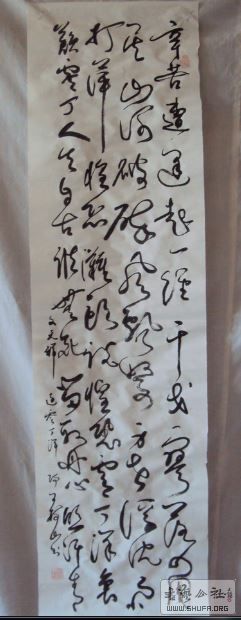 辛苦遭逢起一經干戈寥落四周
星山河破碎風飄絮身世浮沉雨
打萍惶恐灘頭說惶恐零丁洋裏
歎零丁人生自古誰無死留取丹心照汗青
文天祥 過零丁洋
书法公社
WWW.SHUFA.ORG